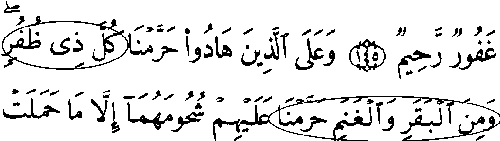 غَفُورٌ رَّحِيمٌ ١٤٥ وَعَلَى ٱلَّذِينَ هَادُوا۟ حَرَّمْنَا كُلَّ ذِى ظُفُرٍۢ ۖ
وَمِنَ ٱلْبَقَرِ وَٱلْغَنَمِ حَرَّمْنَا عَلَيْهِمْ شُحُومَهُمَآ إِلَّا مَا حَمَلَتْ